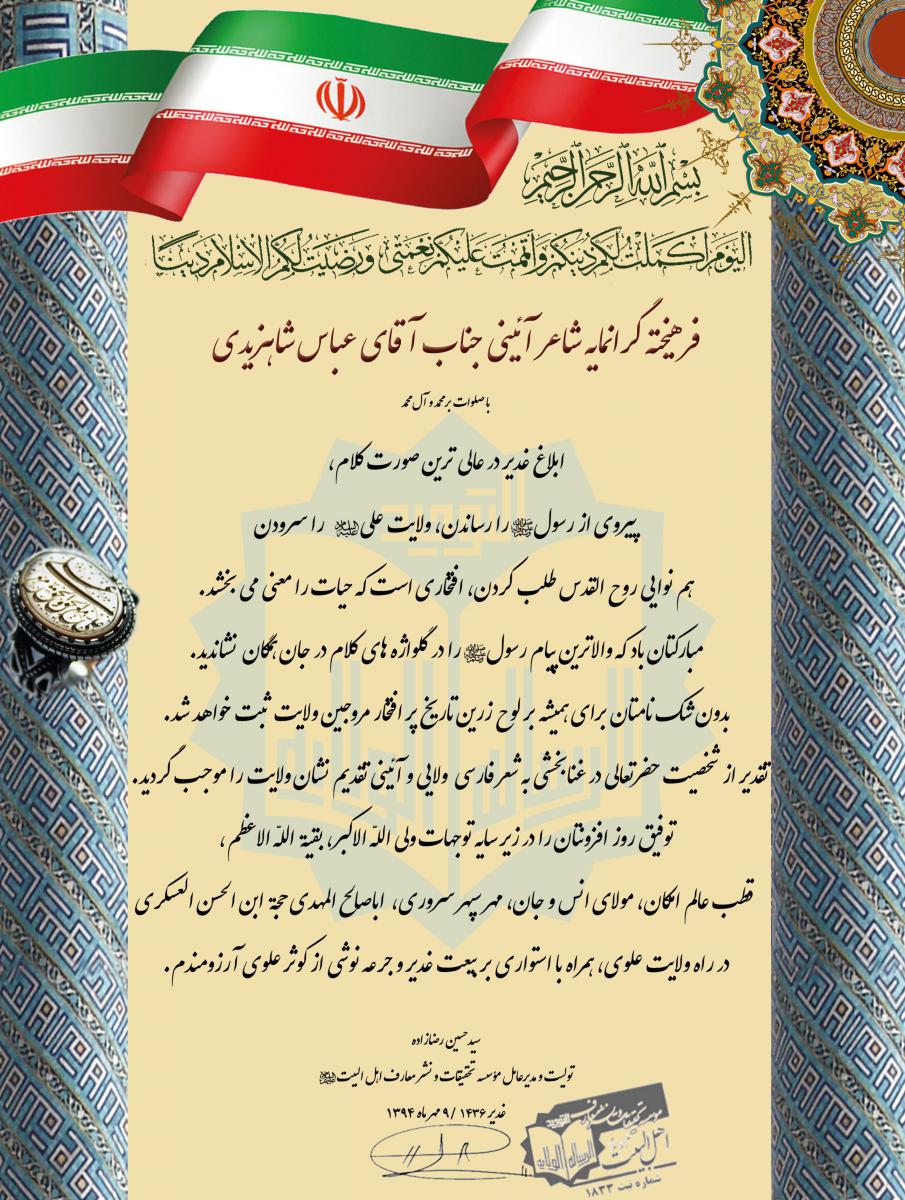 بسم الله الرحمن الرحیم
الیوم اکملت لکم دینکم و اتممت علیکم نعمتی و رضیت لکم الاسلام دینا
فرهیخته گرانمایه شاعر آئینی جناب آقای عباس شاهزیدی
با صلوات بر محمد و آل محمد
ابلاغ غدیر در عالی ترین صورت کلام،
پیروی از رسول ﷺ را رساندن، ولایت علی علیه السلام را سرودن
هم نوایی روح القدس طلب کردن، افتخاری است که حیات را معنی می بخشد.
مبارکتان باد که والاترین پیام رسول ﷺ را در گلواژه های کلام در جان همگان نشاندید.
بدون شک نامتان برای همیشه بر لوح زرین تاریخ پر افتخار مروجین ولایت ثبت خواهد شد.
تقدیر از شخصیت حضرتعالی در غنا بخشی به شعر فارسی ولایی و آئینی تقدیم نشان ولایت را موجب گردید.
توفیق روز افزونتان را در زیر سایه توجهات ولی اللّه الاکبر، بقیة اللّه الاعظم،
قطب عالم امکان، مولای انس و جان، مهر سپهر سروری، اباصالح المهدی حجة ابن الحسن العسکری
در راه ولایت علوی، همراه با استواری بر بیعت غدیر و جرعه نوشی از کوثر علوی آرزومندم.
سید حسین رضازاده
تولیت و مدیرعامل مؤسسه تحقیقات و نشر معارف اهل البیت علیهم السلام
غدیر ۱۴۳۶ / ۹ مهر ماه ۱۳۹۴
مؤسسه تحقیقات و نشر معارف
اهل البیت
التوحید
الرسالة الولایة
شماره ثبت ۱۸۳۳